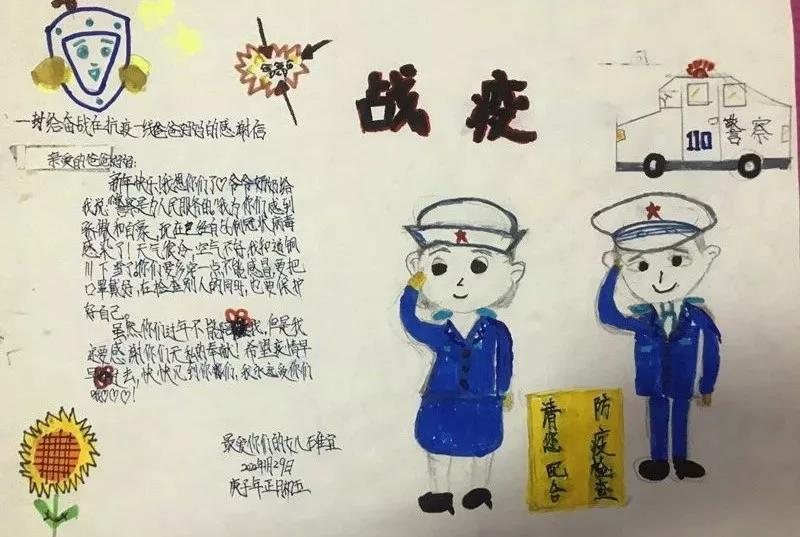 战疫
一封给奋战在抗疫一线爸爸妈妈的感谢信
亲爱的爸爸妈妈:
新年快乐!我想你们了♡爷爷奶奶给
我说"警察是为人民服务的,"我为你们感到
骄傲和自豪。现在
冠状病毒
感染了!天气很冷,空气不好,我知道
下雪了,你们要多穿一点不能感冒,要把
口罩戴好,在检查别人的同时,也要保护
好自己。
虽然,你们过年不能陪我,但是我
还要感谢你们无私的奉献!希望疫情早
早过去,快快见到你们,我永远爱你们
哦♡♡♡!
最爱你们的女儿
2020年1月29日
庚子年正月初五
110
警察
防疫检查
请您配合